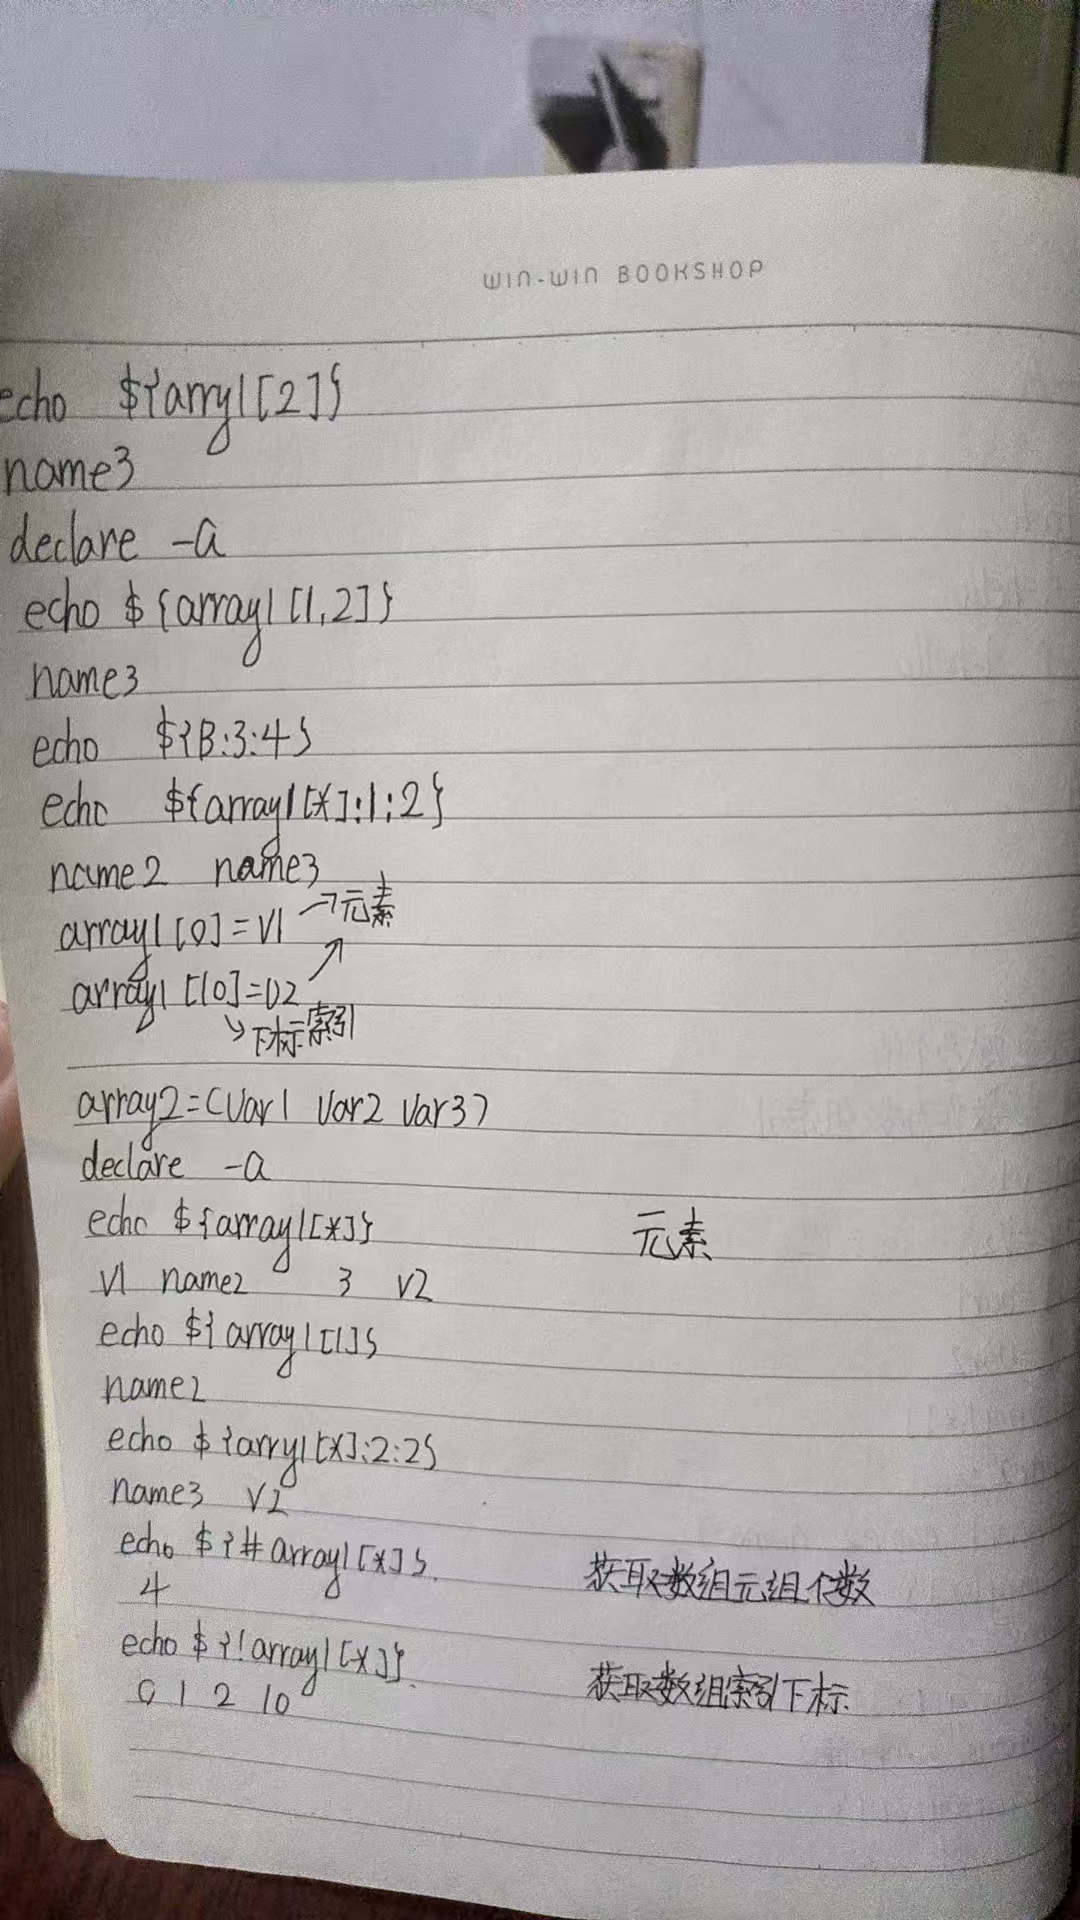 WIN-WIN BOOKSHOP
echo ${arry1[2]}
name3
declare -a
echo ${array1[1,2]}
name3
echo ${B:3:4}
echo ${array1[*]:1:2}
name2 name3
array1[0]=V1 →元素
array1[10]=V2
↘下标索引
array2=(Var1 Var2 Var3)
declare -a
echo ${array1[*]} 元素
V1 name2 3 V2
echo ${array1[1]}
name2
echo ${arry1[*]:2:2}
name3 V2
echo ${#array1[*]}. 获取数组元组个数
4
echo ${!array1[*]}. 获取数组索引下标
0 1 2 10